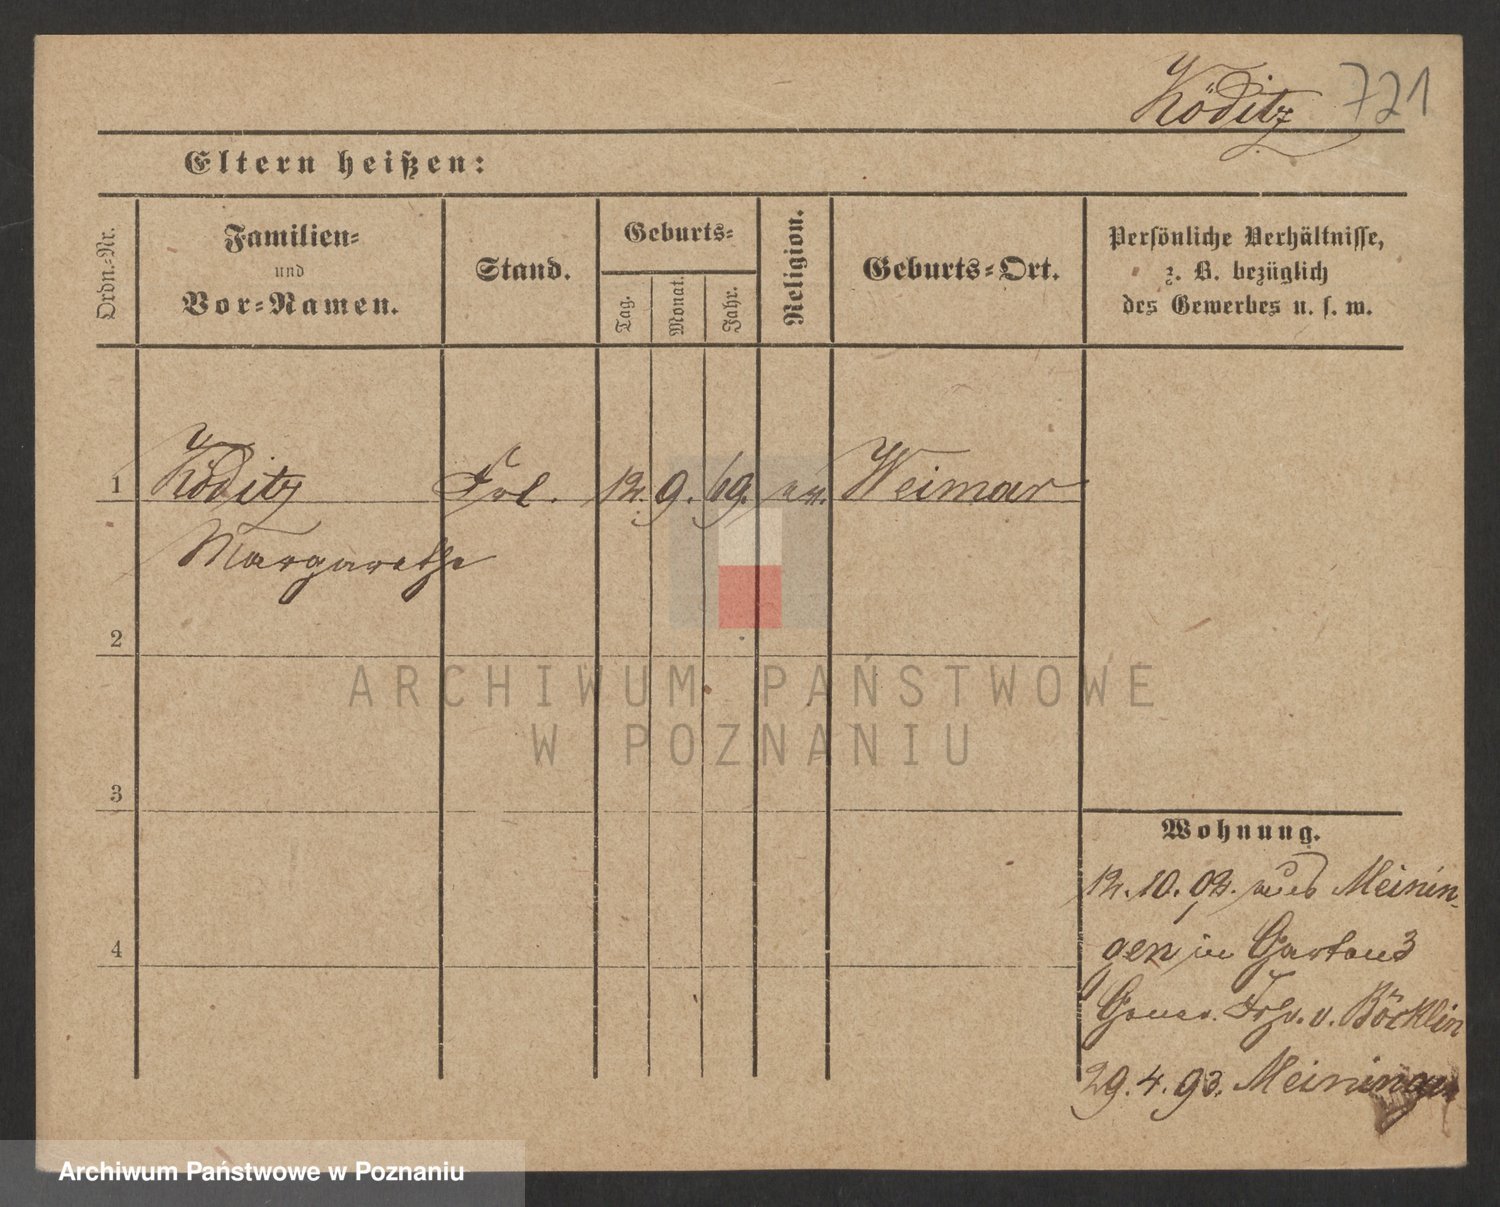 Köditz 721
Eltern heißen:
Ordn.-Nr.
Familien-
und
Vor-Namen.
Stand.
Geburts-
Tag.
Monat.
Jahr.
Religion.
Geburts-Ort.
Persönliche Verhältnisse,
z. B. bezüglich
des Gewerbes u. s. w.
1 Köditz Frl. 12. 9. 69. ev. Weimar
Margarethe
2
ARCHIWUM PAŃSTWOWE
W POZNANIU
3
Wohnung.
12. 10. 92. aus Meinin-
gen in Gartens 3
v. Böcklin
4
29. 4. 93. Meiningen
Archiwum Państwowe w Poznaniu